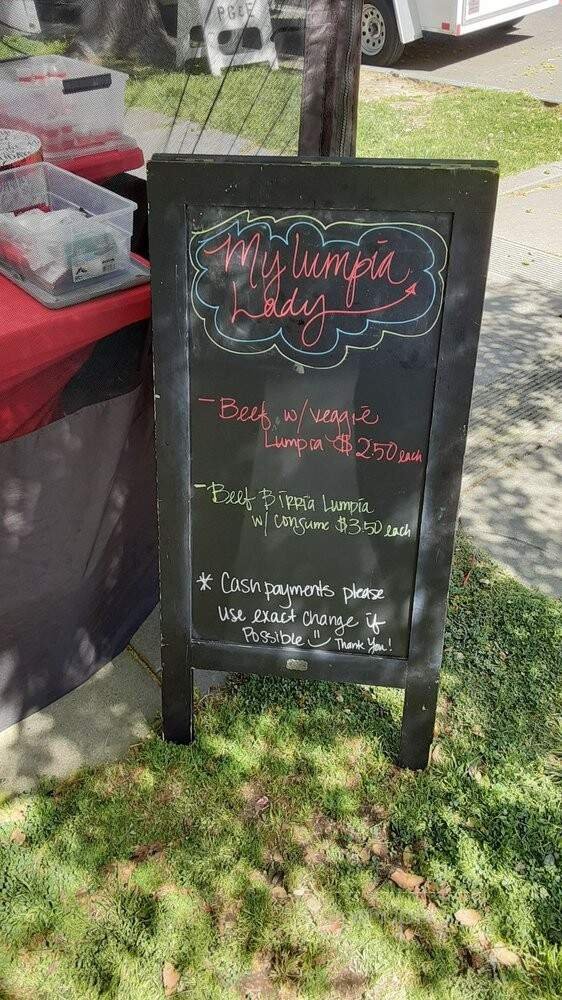 PG&E
My lumpia
Lady
- Beef w/ veggie
Lumpia $2.50 each
- Beef Birria Lumpia
w/ consume $3.50 each
* Cash payments please
use exact change if
Possible Thank You!